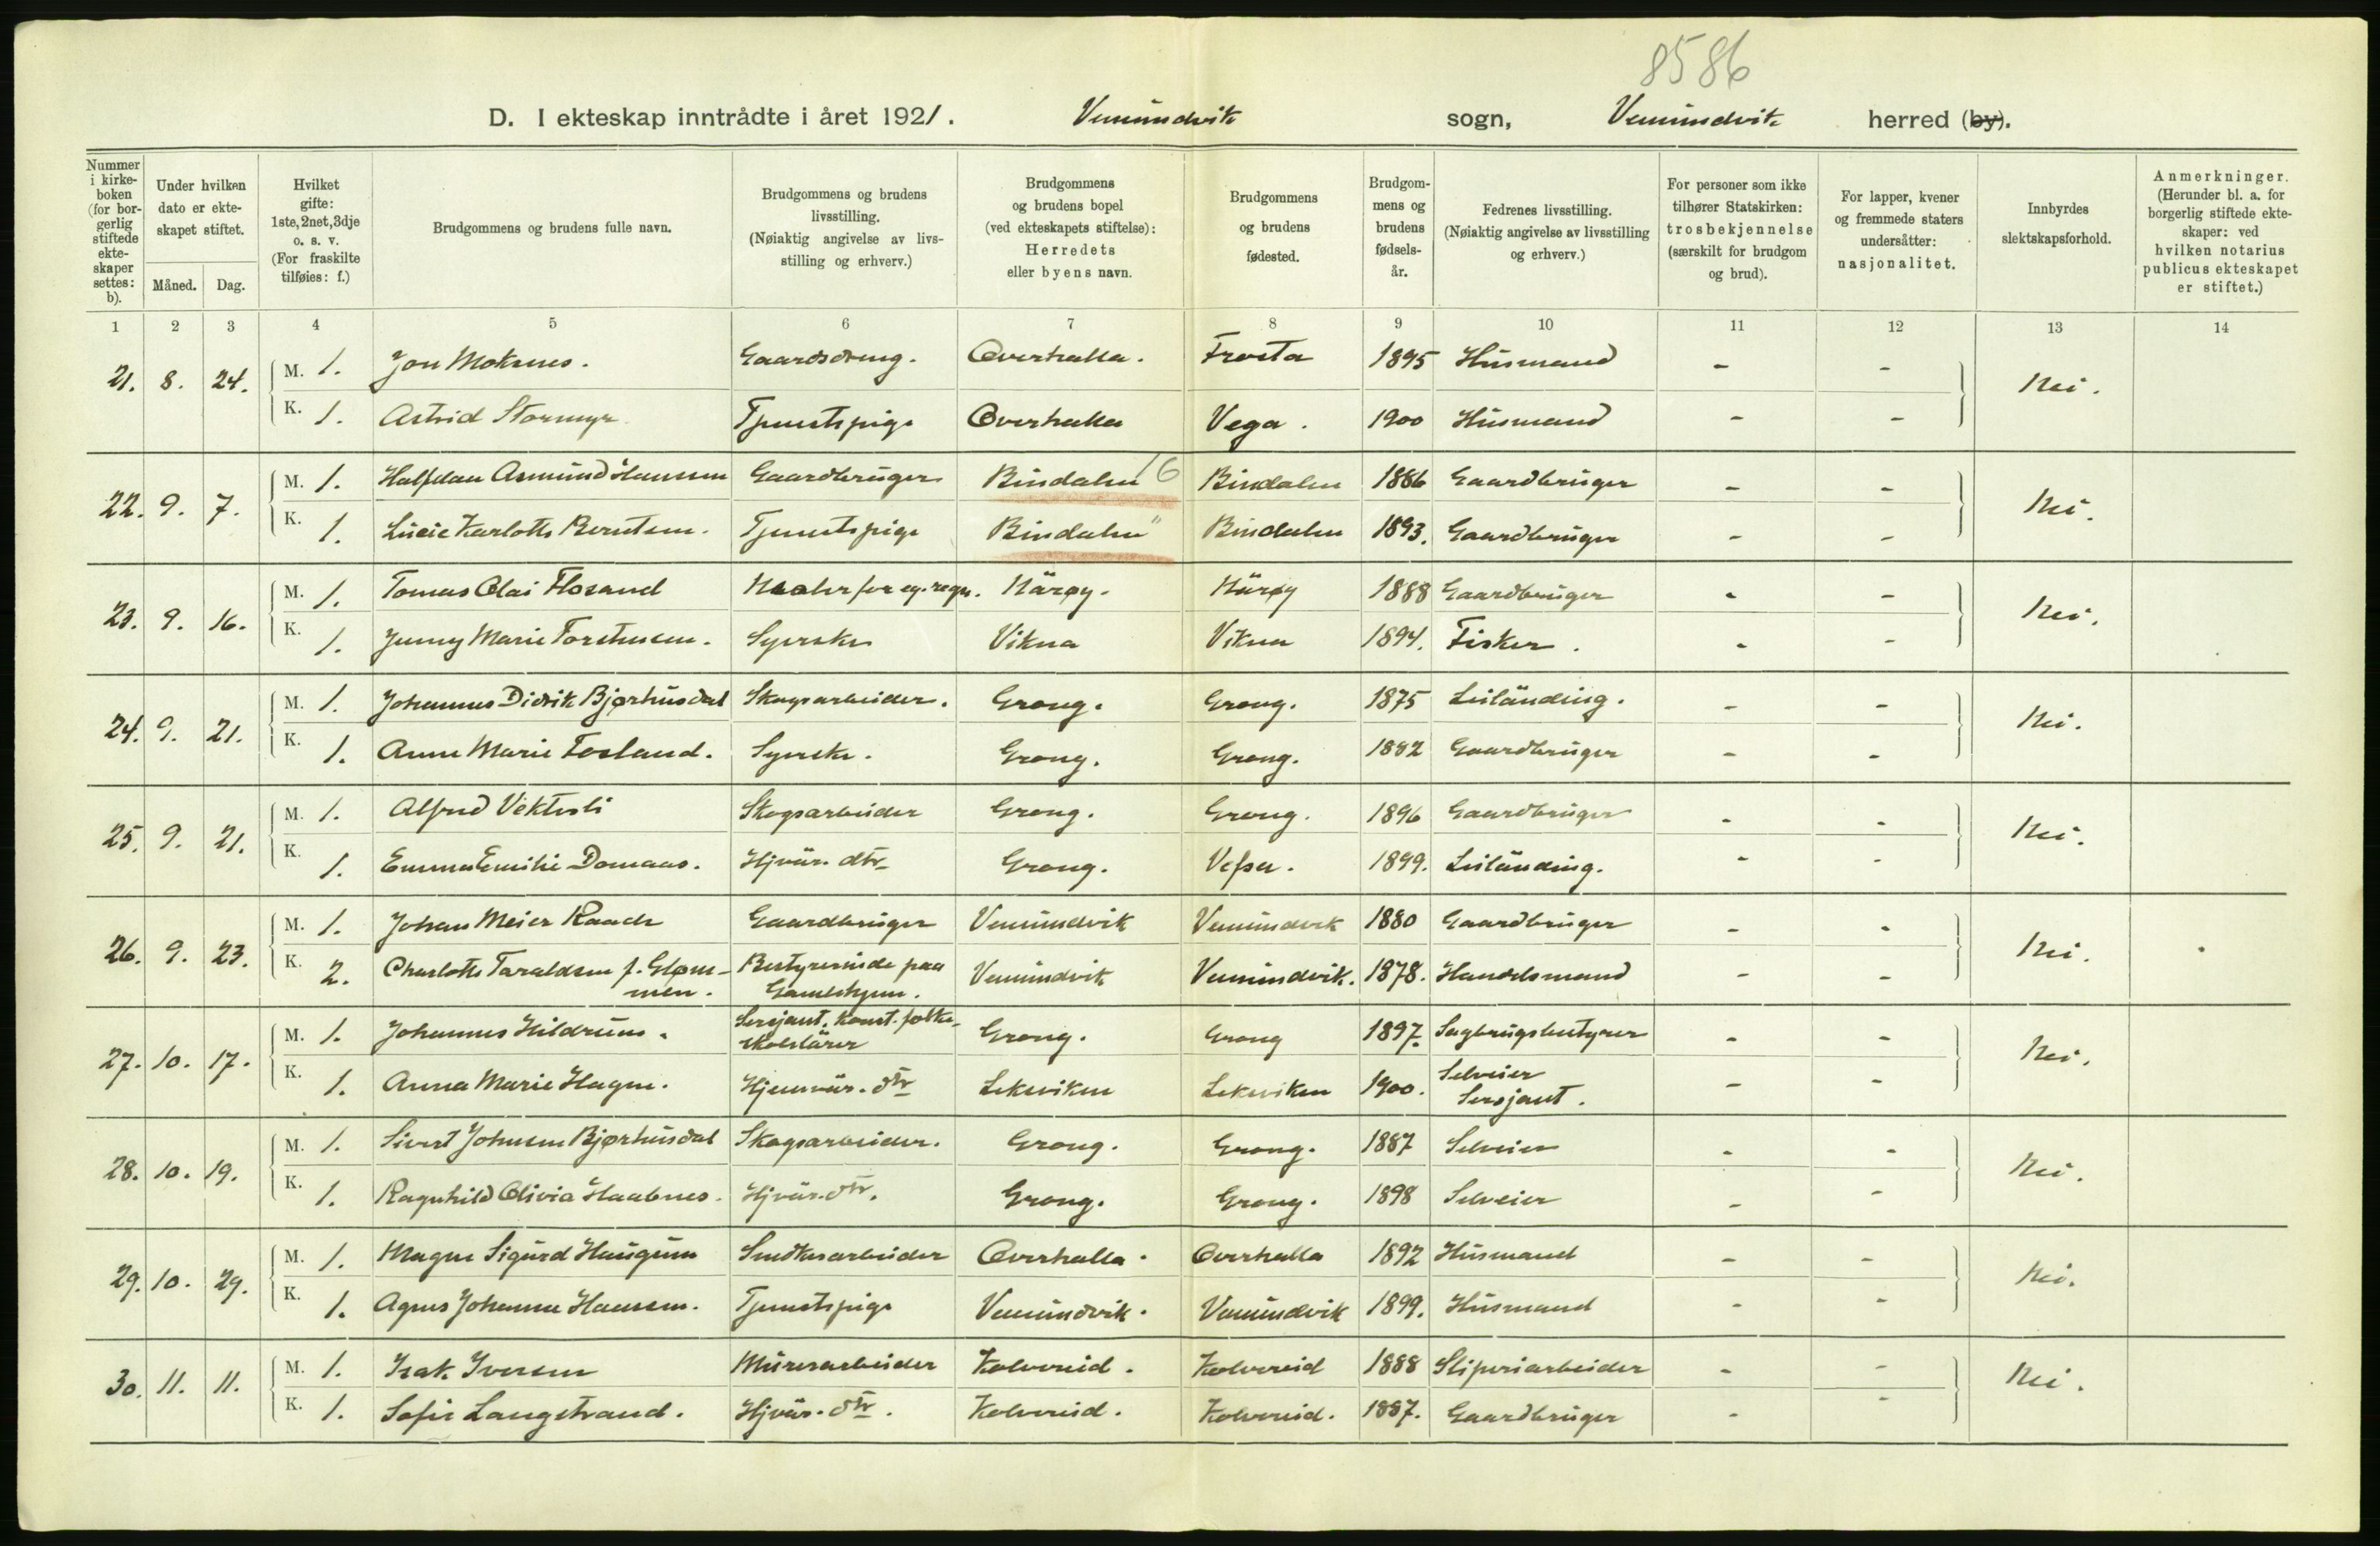 8586
D. I ekteskap inntrådte i året 1921. Vemundvik sogn, Vemundvik herred (by).
Nummer i kirkeboken (for borgerlig stiftede ekteskaper settes: b).
Under hvilken dato er ekteskapet stiftet.
Måned. Dag.
Hvilket gifte: 1ste, 2net, 3dje o. s. v. (For fraskilte tilføies: f.)
Brudgommens og brudens fulle navn.
Brudgommens og brudens livsstilling. (Nøiaktig angivelse av livsstilling og erhverv.)
Brudgommens og brudens bopel (ved ekteskapets stiftelse): Herredets eller byens navn.
Brudgommens og brudens fødested.
Brudgommens og brudens fødselsår.
Fedrenes livsstilling. (Nøiaktig angivelse av livsstilling og erhverv.)
For personer som ikke tilhører Statskirken: trosbekjennelse (særskilt for brudgom og brud).
For lapper, kvener og fremmede staters undersåtter: nasjonalitet.
Innbyrdes slektskapsforhold.
Anmerkninger. (Herunder bl. a. for borgerlig stiftede ekteskaper: ved hvilken notarius publicus ekteskapet er stiftet.)
1 2 3 4 5 6 7 8 9 10 11 12 13 14
21. 8. 24. M. 1. Jon Moksnes. Gaardsdreng. Overhalla. Frosta 1895 Husmand - - Nei.
K. 1. Astrid Stormyr Tjenestepige Overhalla Vega. 1900 Husmand - -
22. 9. 7. M. 1. Halfdan Asmund Hanssen Gaardbruger Bindalen 16 Bindalen 1886 Gaardbruger - - Nei.
K. 1. Lucie Karlotte Berntsen. Tjenestepige Bindalen " Bindalen 1893. Gaardbruger - -
23. 9. 16. M. 1. Tomas Olai Flosand for eg. regn. Nærøy. Nærøy 1888 Gaardbruger - - Nei.
K. 1. Jenny Marie Torstensen. Syerske Vikna Vikna 1894. Fisker. - -
24. 9. 21. M. 1. Johannes Didrik Bjørhusdal Skogsarbeider. Grong. Grong. 1875 Leilænding. - - Nei.
K. 1. Anne Marie Fosland. Syerske. Grong. Grong. 1882 Gaardbruger - -
25. 9. 21. M. 1. Alfred Vekterli Skogsarbeider Grong. Grong. 1896 Gaardbruger - - Nei.
K. 1. Emma Emilie Domaas. Hjvær. dtr Grong. Vefsn. 1899. Leilænding. - -
26. 9. 23. M. 1. Johan Meier Raade Gaardbruger Vemundvik Vemundvik 1880 Gaardbruger - - Nei.
K. 2. Charlotte Taraldsen f. Gløm- Bestyrerinde paa Vemundvik Vemundvik. 1878. Handelsmand - -
men. Gamlehjem.
27. 10. 17. M. 1. Johannes Hildrum. Sersjant. Konst. folke- Grong. Grong 1897. Sagbrugsbestyrer - - Nei.
skolelærer
K. 1. Anna Marie Hagen. Hjemvær. dtr Leksviken Leksviken 1900. Selveier - -
Sersjant.
28. 10. 19. M. 1. Sivert Johnsen Bjørhusdal Skogsarbeider. Grong. Grong. 1887 Selveier - - Nei.
K. 1. Ragnhild Olivia Haabnes. Hjvær. dtr. Grong. Grong. 1898 Selveier - -
29. 10. 29. M. 1. Magne Sigurd Haugum Overhalla. Overhalla 1892 Husmand - - Nei.
K. 1. Agnes Johanne Hanssen. Tjenestepige Vemundvik. Vemundvik 1899. Husmand - -
30. 11. 11. M. 1. Isak Iversen Murerarbeider Kolvereid. Kolvereid 1888 Sliperiarbeider - - Nei.
K. 1. Sofie Langstrand. Hjvær. dtr. Kolvereid. Kolvereid. 1887. Gaardbruger - -